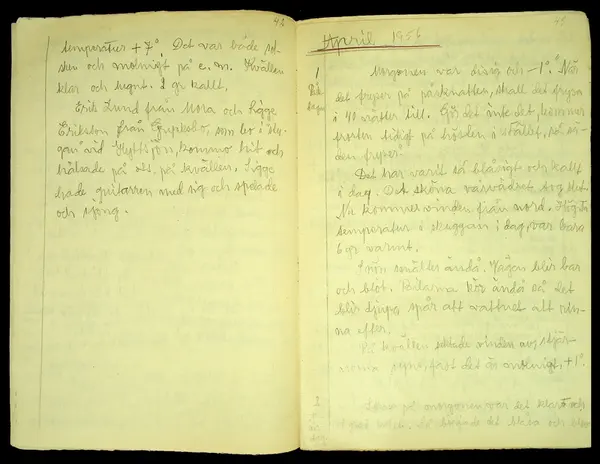 42
temperatur +7°. Det var både sol-
sken och molnigt på e.m. Kvällen
klar och lugnt. 1 gr kallt.
Erik Lund från Mora och Sigge
Eriksson från Grycksbo, som bo i stu-
gan vid Hyttsjön, kommo hit och
hälsade på oss på kvällen. Sigge
hade guitarren med sig och spelade
och sjöng.
45
April 1956
1
Morgonen var disig och -1°. När
det fryser på påsknatten, skall det frysa
i 40 nätter till. Gör det inte det, kommer
frosten tidigt på hösten i stället, så sä-
den fryser.
Det har varit så blåsigt och kallt
i dag. Det sköna vårvädret tog slut.
Nu kommer vinden från nord. Högsta
temperatur i skuggan i dag, var bara
6 gr varmt.
Snön smälter ändå. Vägen blir bar
och blöt. Bilarna kör ändå så det
blir djupa spår att vattnet att rin-
na efter.
På kvällen vinden av, stjär-
norna syns, fast det är molnigt, +1°.
2
på morgonen var det klart och